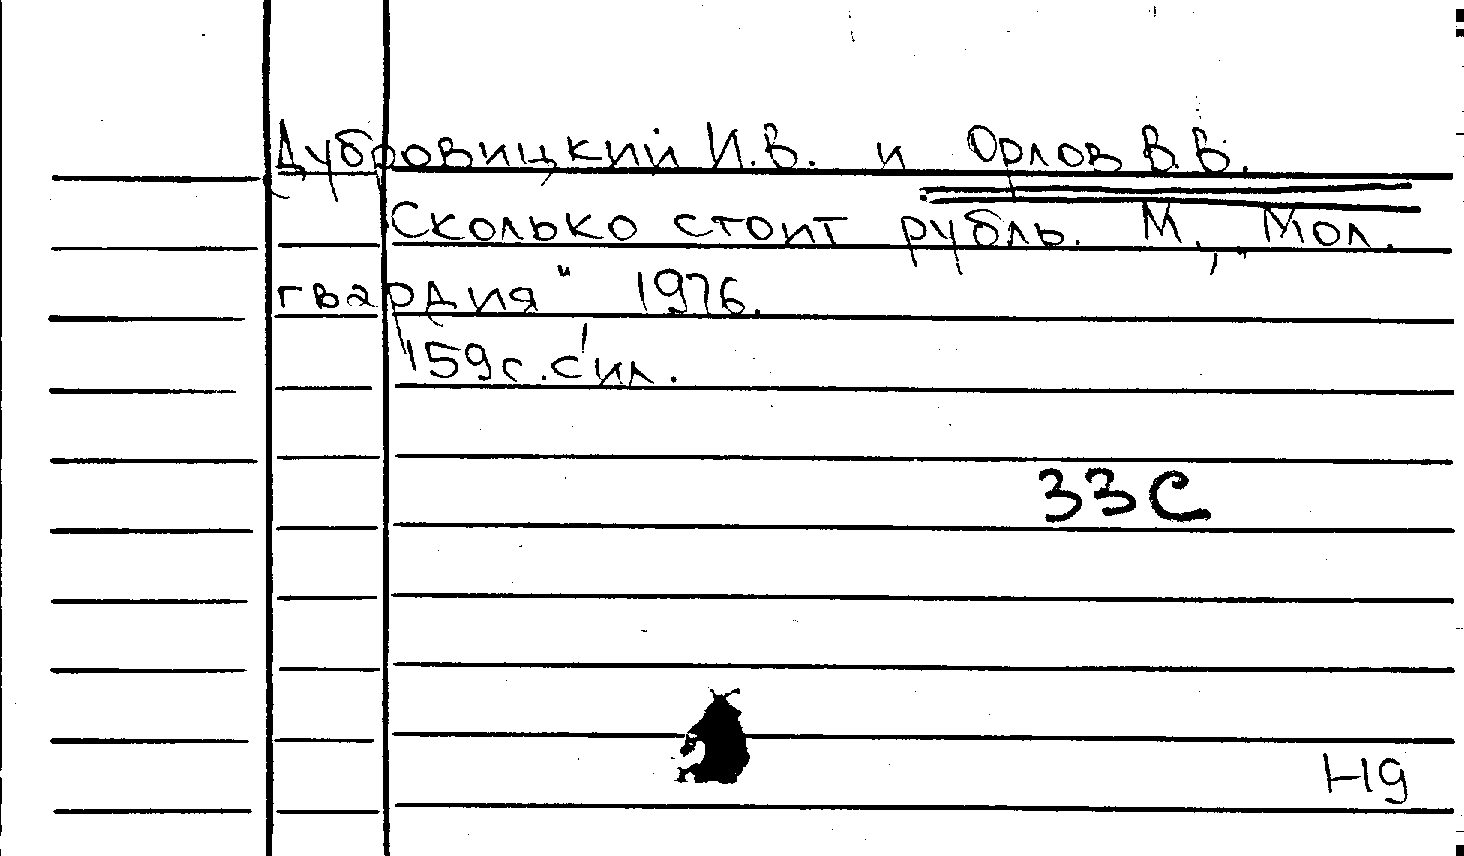 Дубровицкий И.В. и Орлов В.В.
Сколько стоит рубль. М., „Мол.
гвардия" 1976.
159с. с ил.
33С
Н9